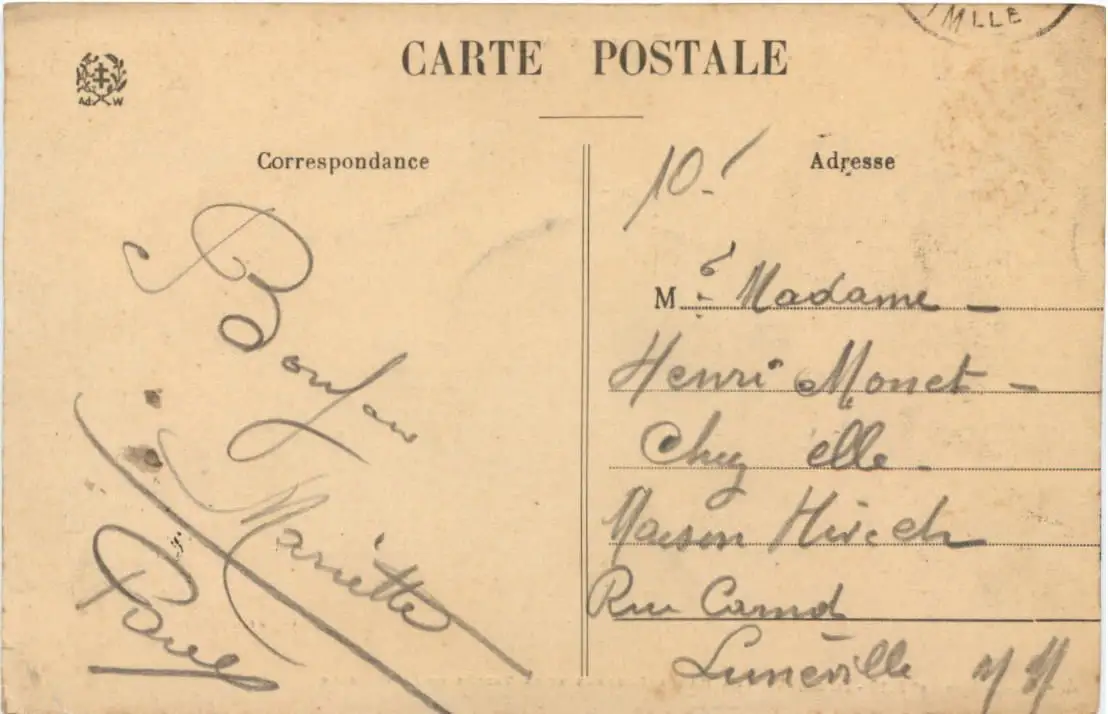 MLLE
CARTE POSTALE
Ad. W
Correspondance
Adresse
10.-
M Madame -
Henri Monet -
Chez elle -
Maison Hirsch
Rue Carnot
Lunéville
Mariette
Paul